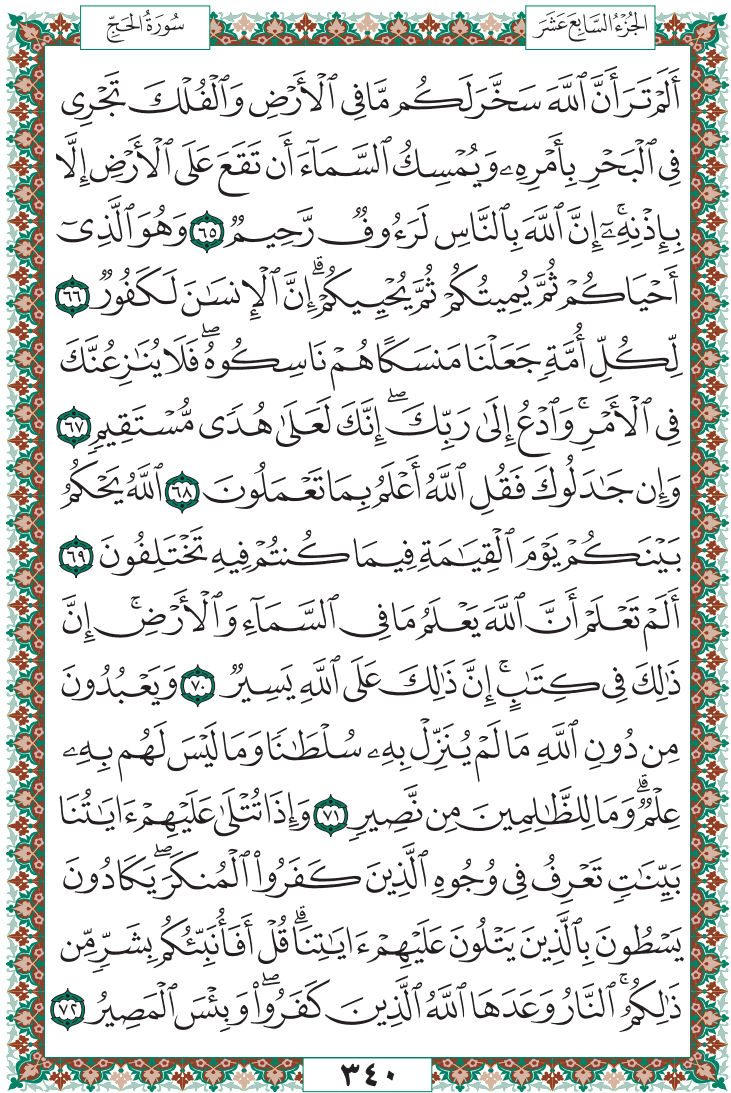 سُورَةُ الحَجِّ
الجُزْءُ السَّابِعَ عَشَرَ
أَلَمْ تَرَ أَنَّ ٱللَّهَ سَخَّرَ لَكُم مَّا فِى ٱلْأَرْضِ وَٱلْفُلْكَ تَجْرِى
فِى ٱلْبَحْرِ بِأَمْرِهِۦ وَيُمْسِكُ ٱلسَّمَآءَ أَن تَقَعَ عَلَى ٱلْأَرْضِ إِلَّا
بِإِذْنِهِۦٓ ۚ إِنَّ ٱللَّهَ بِٱلنَّاسِ لَرَءُوفٌ رَّحِيمٌ ٦٥ وَهُوَ ٱلَّذِىٓ
أَحْيَاكُمْ ثُمَّ يُمِيتُكُمْ ثُمَّ يُحْيِيكُمْ ۗ إِنَّ ٱلْإِنسَٰنَ لَكَفُورٌ ٦٦
لِّكُلِّ أُمَّةٍ جَعَلْنَا مَنسَكًا هُمْ نَاسِكُوهُ ۖ فَلَا يُنَٰزِعُنَّكَ
فِى ٱلْأَمْرِ ۚ وَٱدْعُ إِلَىٰ رَبِّكَ ۖ إِنَّكَ لَعَلَىٰ هُدًى مُّسْتَقِيمٍ ٦٧
وَإِن جَٰدَلُوكَ فَقُلِ ٱللَّهُ أَعْلَمُ بِمَا تَعْمَلُونَ ٦٨ ٱللَّهُ يَحْكُمُ
بَيْنَكُمْ يَوْمَ ٱلْقِيَٰمَةِ فِيمَا كُنتُمْ فِيهِ تَخْتَلِفُونَ ٦٩
أَلَمْ تَعْلَمْ أَنَّ ٱللَّهَ يَعْلَمُ مَا فِى ٱلسَّمَآءِ وَٱلْأَرْضِ ۚ إِنَّ
ذَٰلِكَ فِى كِتَٰبٍ ۚ إِنَّ ذَٰلِكَ عَلَى ٱللَّهِ يَسِيرٌ ٧٠ وَيَعْبُدُونَ
مِن دُونِ ٱللَّهِ مَا لَمْ يُنَزِّلْ بِهِۦ سُلْطَٰنًا وَمَا لَيْسَ لَهُم بِهِۦ
عِلْمٌ ۗ وَمَا لِلظَّٰلِمِينَ مِن نَّصِيرٍ ٧١ وَإِذَا تُتْلَىٰ عَلَيْهِمْ ءَايَٰتُنَا
بَيِّنَٰتٍ تَعْرِفُ فِى وُجُوهِ ٱلَّذِينَ كَفَرُوا۟ ٱلْمُنكَرَ ۖ يَكَادُونَ
يَسْطُونَ بِٱلَّذِينَ يَتْلُونَ عَلَيْهِمْ ءَايَٰتِنَا ۗ قُلْ أَفَأُنَبِّئُكُم بِشَرٍّ مِّن
ذَٰلِكُمُ ۚ ٱلنَّارُ وَعَدَهَا ٱللَّهُ ٱلَّذِينَ كَفَرُوا۟ ۖ وَبِئْسَ ٱلْمَصِيرُ ٧٢
٣٤٠